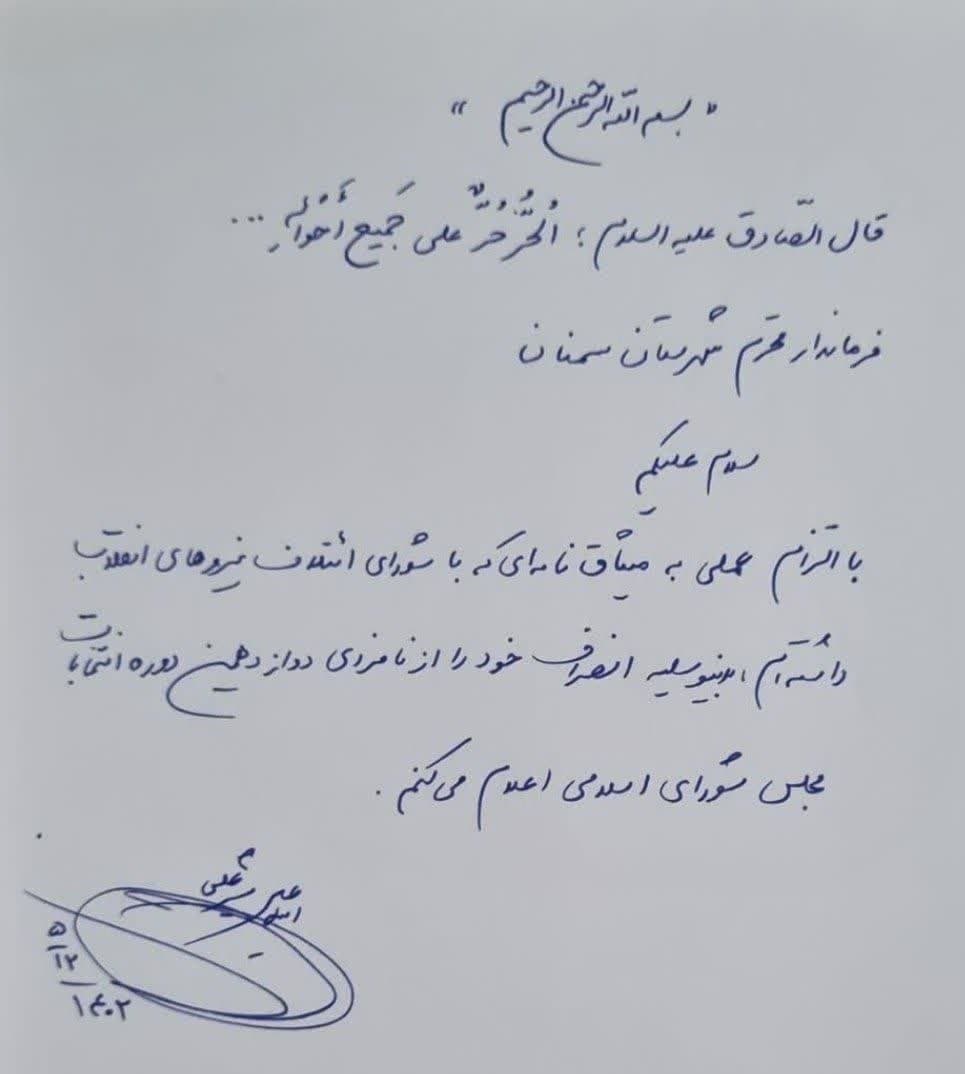 " بسم الله الرحمن الرحیم "
قال الصّادق علیه السلام ؛ اَلحُرَّ حُرٌّ علی جَمیعِ أحْوالِهِ ...
فرماندار محترم شهرستان سمنان
سلام علیکم
با التزام عملی به میثاق نامه‌ای که با شورای ائتلاف نیروهای انقلاب
داشته‌ام بدینوسیله انصراف خود را از نامزدی دوازدهمین دوره انتخابات
مجلس شورای اسلامی اعلام می‌کنم .
۵
۱۲
۱۴۰۲